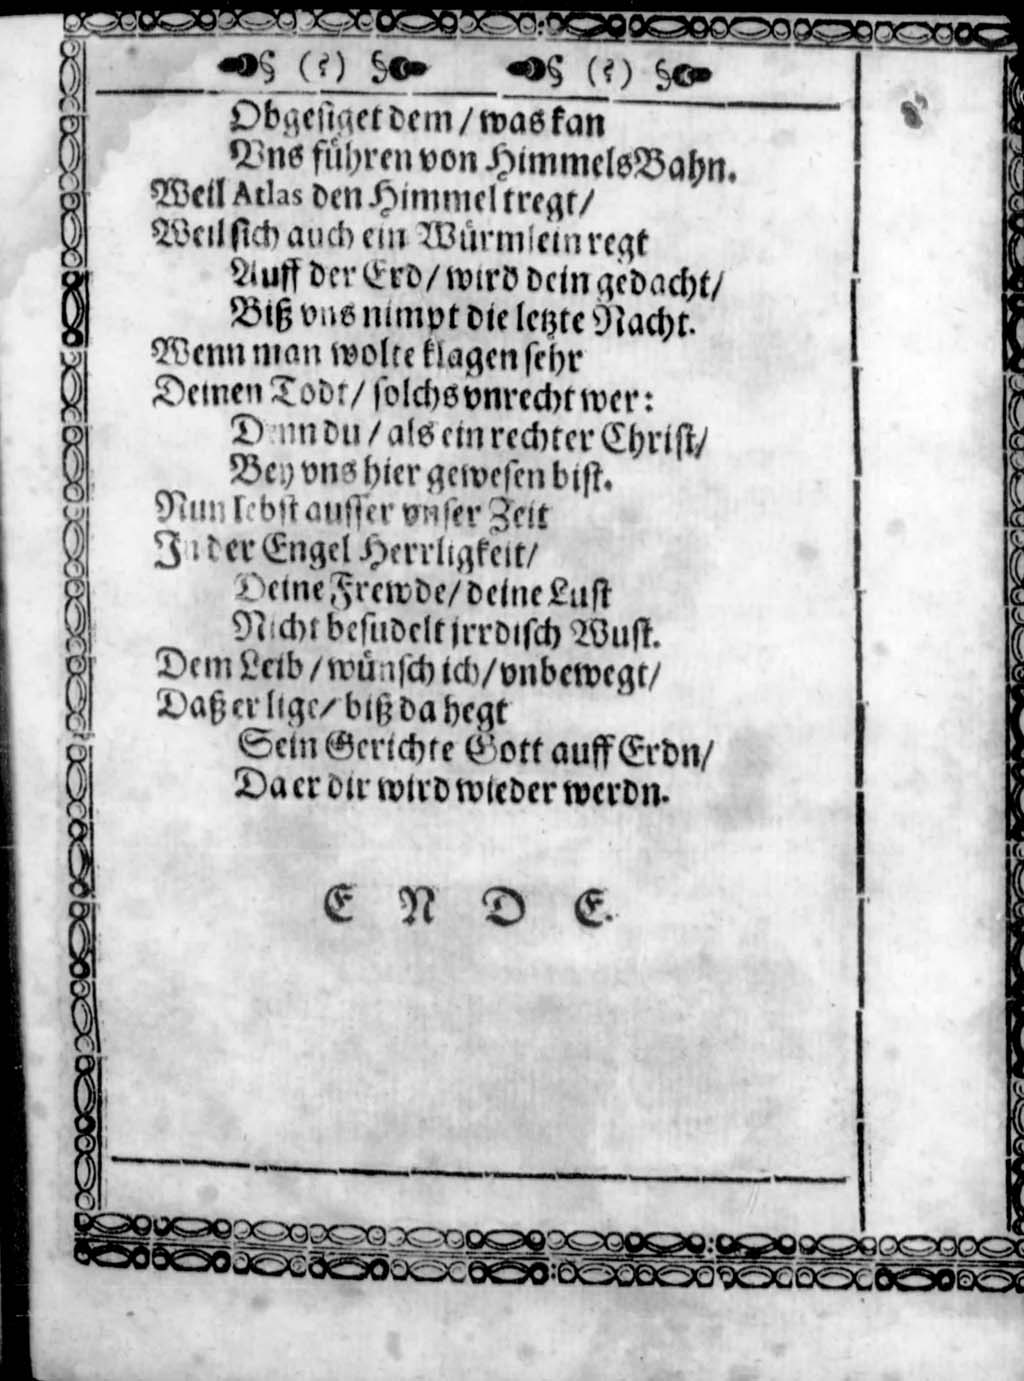 § (?) § § (?) §
Obgesiget dem / was kan
Vns führen von HimmelsBahn.
Weil Atlas den Himmel tregt /
Weil sich auch ein Würmlein regt
Auff der Erd / wird dein gedacht /
Biß vns nimpt die letzte Nacht.
Wenn man wolte klagen sehr
Deinen Todt / solchs vnrecht wer:
Denn du / als ein rechter Christ /
Bey vns hier gewesen bist.
Nun lebst ausser vnser Zeit
In der Engel Herrligkeit /
Deine Frewde / deine Lust
Nicht besudelt jrrdisch Wust.
Dem Leib / wünsch ich / vnbewegt /
Daß er lige / biß da hegt
Sein Gerichte Gott auff Erdn /
Da er dir wird wieder werdn.
E N D E.